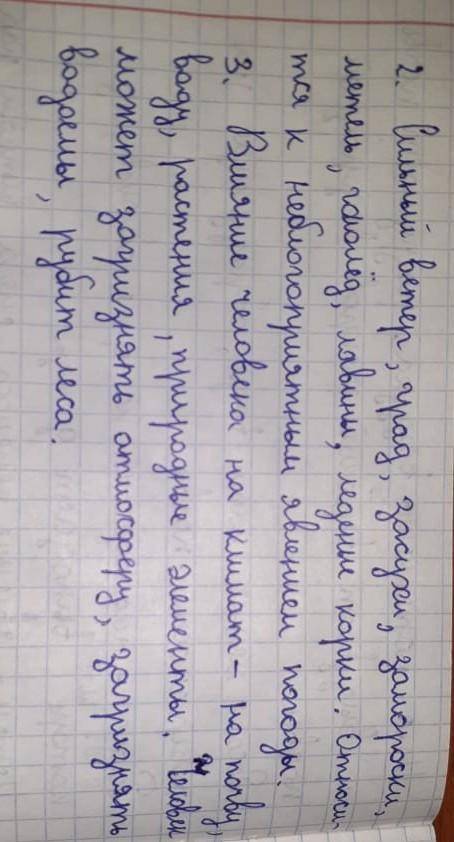 2. Сильный ветер, град, засухи, заморозки,
метель, гололёд, лавины, ледение корки. Относи-
тся к неблогоприятным явлением погоды.
3. Влияние человека на климат - на почву,
воду, растения, природные элементы. Человек
может загризнять атмосферу, загризнять
водоемы, рубит леса.